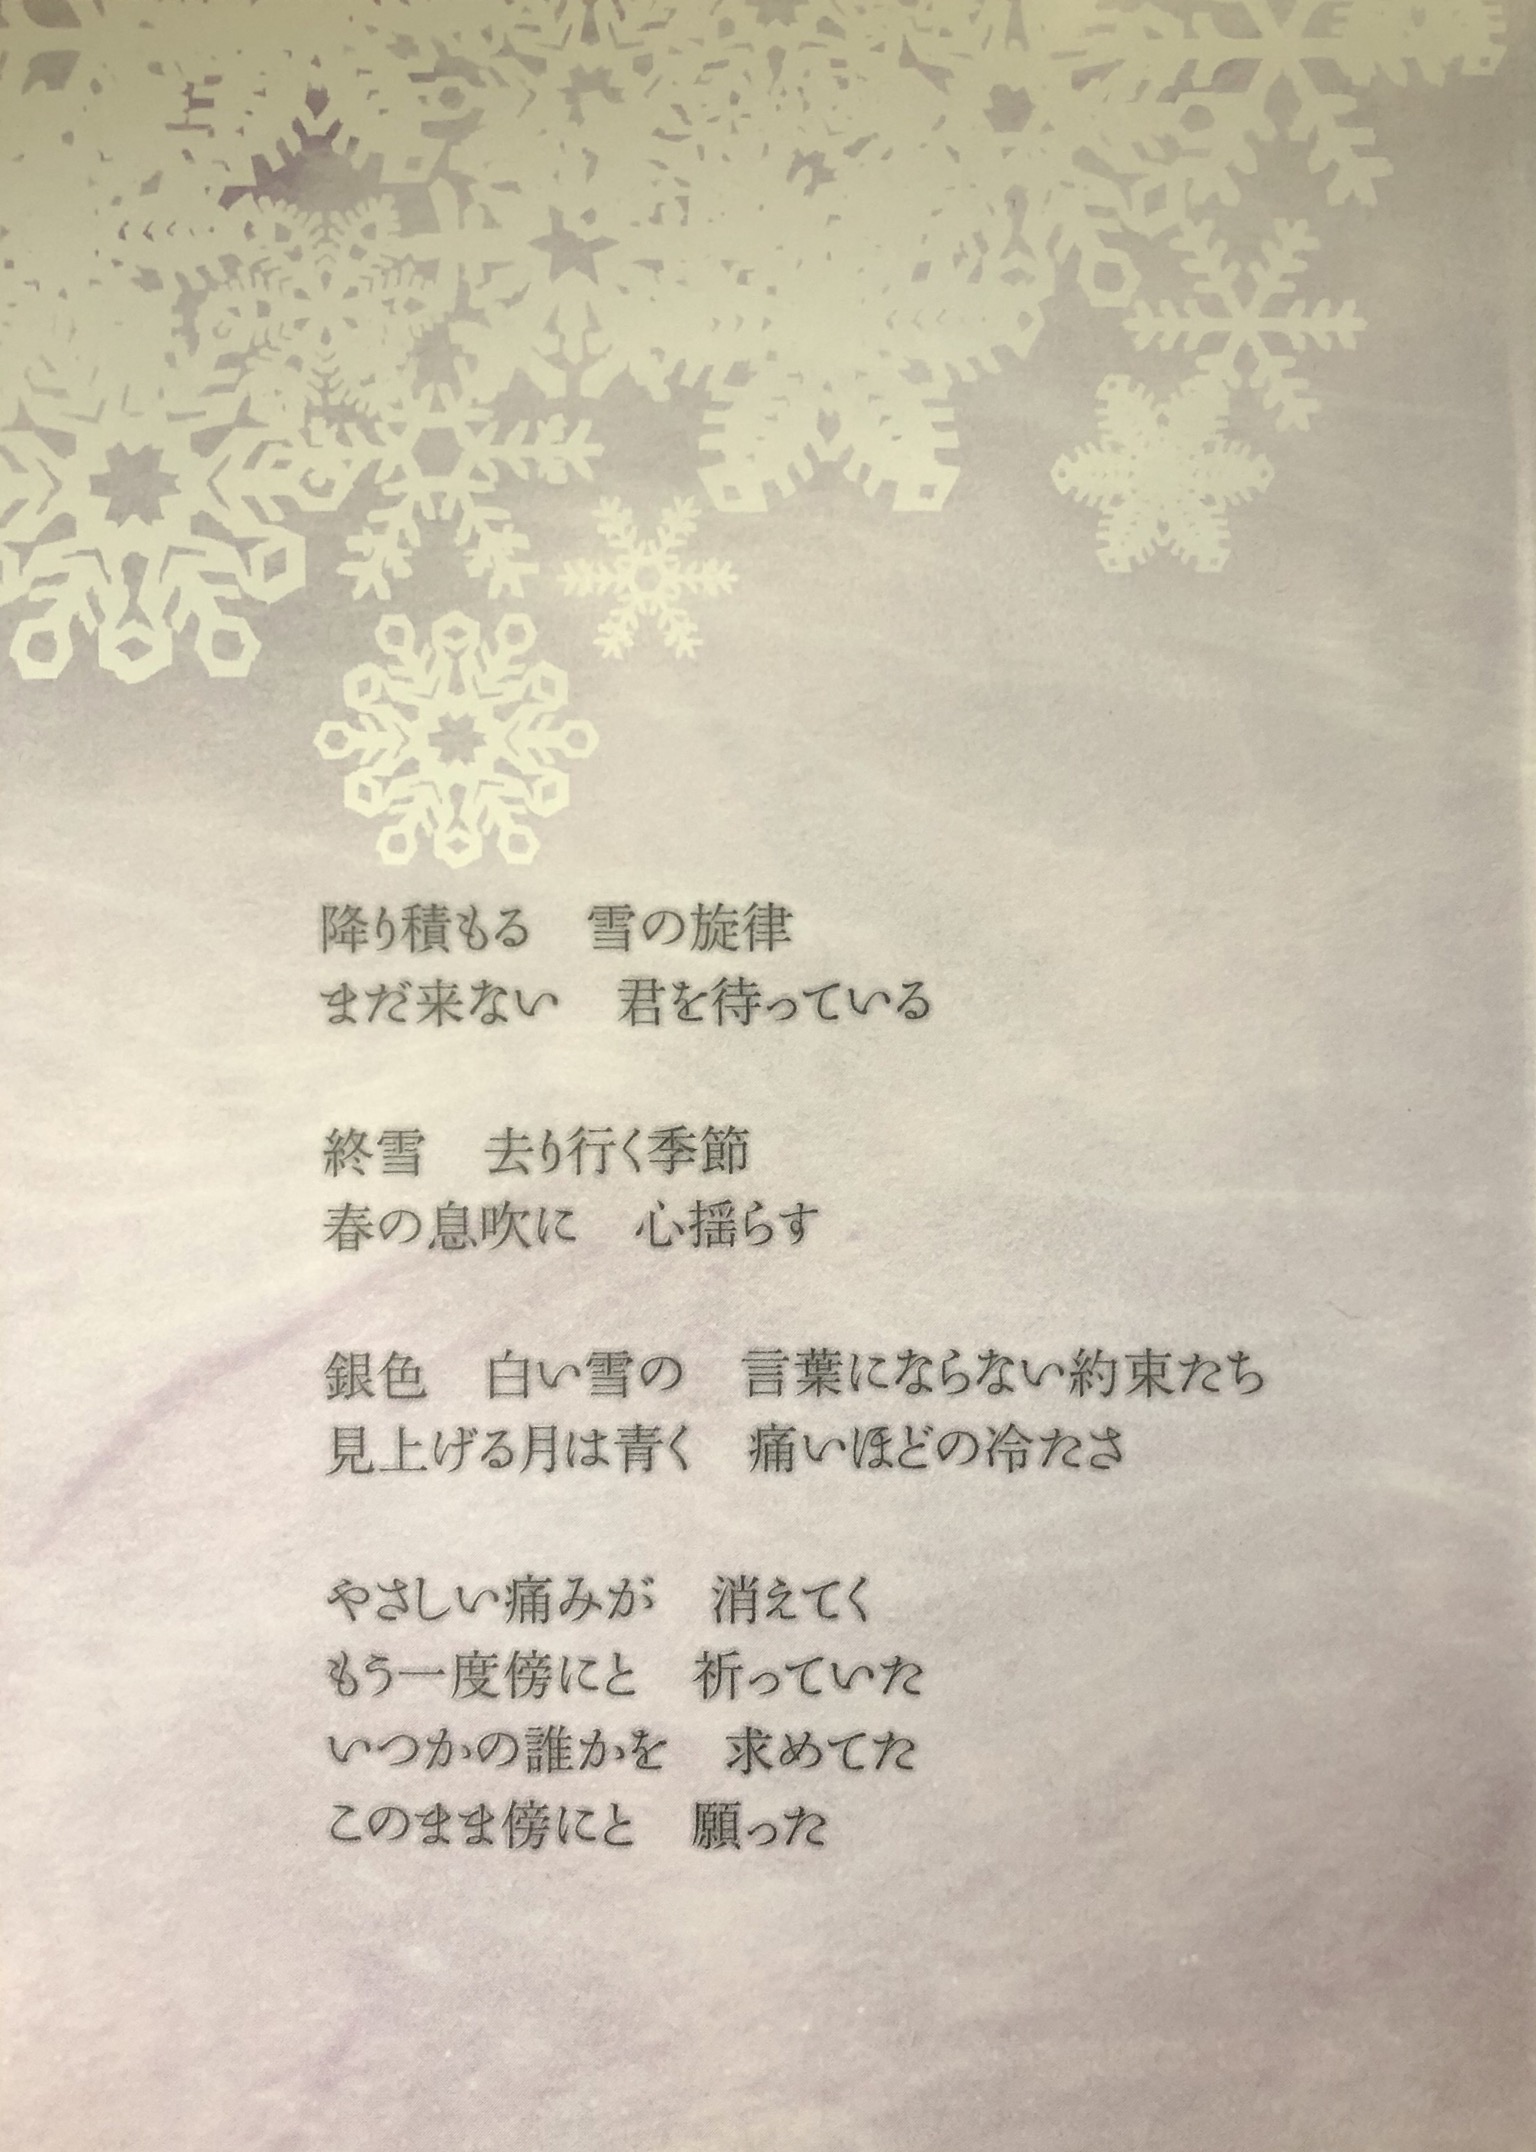 降り積もる　雪の旋律
まだ来ない　君を待っている
終雪　去り行く季節
春の息吹に　心揺らす
銀色　白い雪の　言葉にならない約束たち
見上げる月は青く　痛いほどの冷たさ
やさしい痛みが　消えてく
もう一度傍にと　祈っていた
いつかの誰かを　求めてた
このまま傍にと　願った